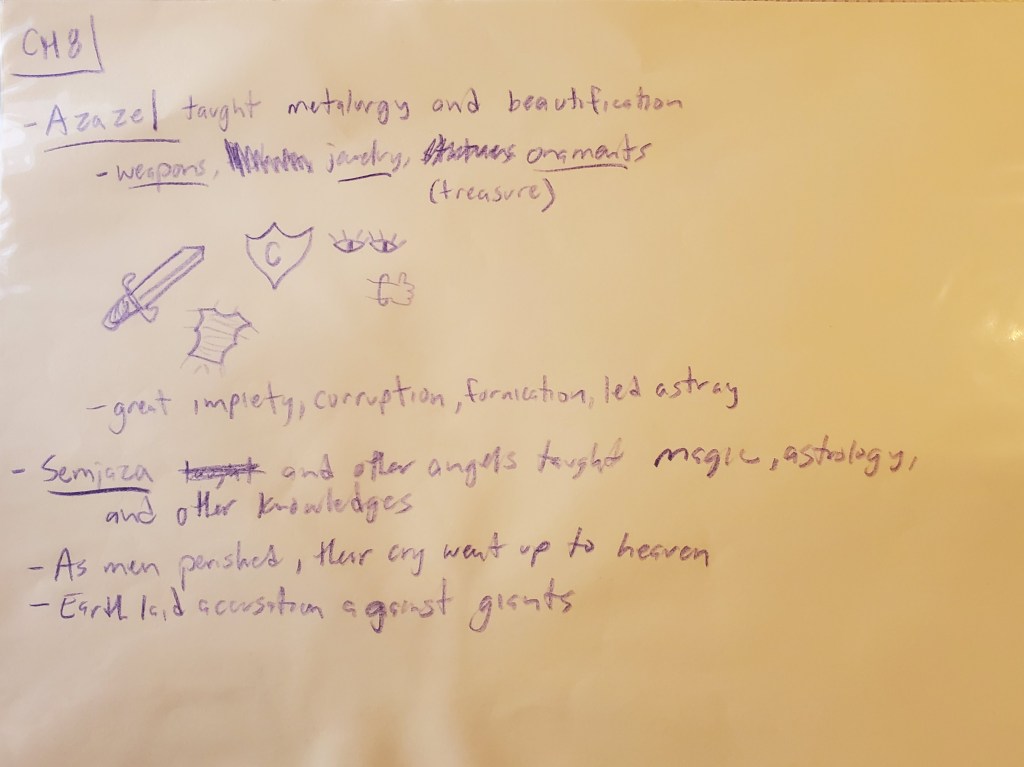 CH 8
- Azazel taught metalurgy and beautification
- weapons, jewelry, onaments
(treasure)
C
- great impiety, corruption, fornication, led astray
- Semjaza taught and other angels taught magic, astrology,
and other knowledges
- As men perished, their cry went up to heaven
- Earth laid accusation against giants